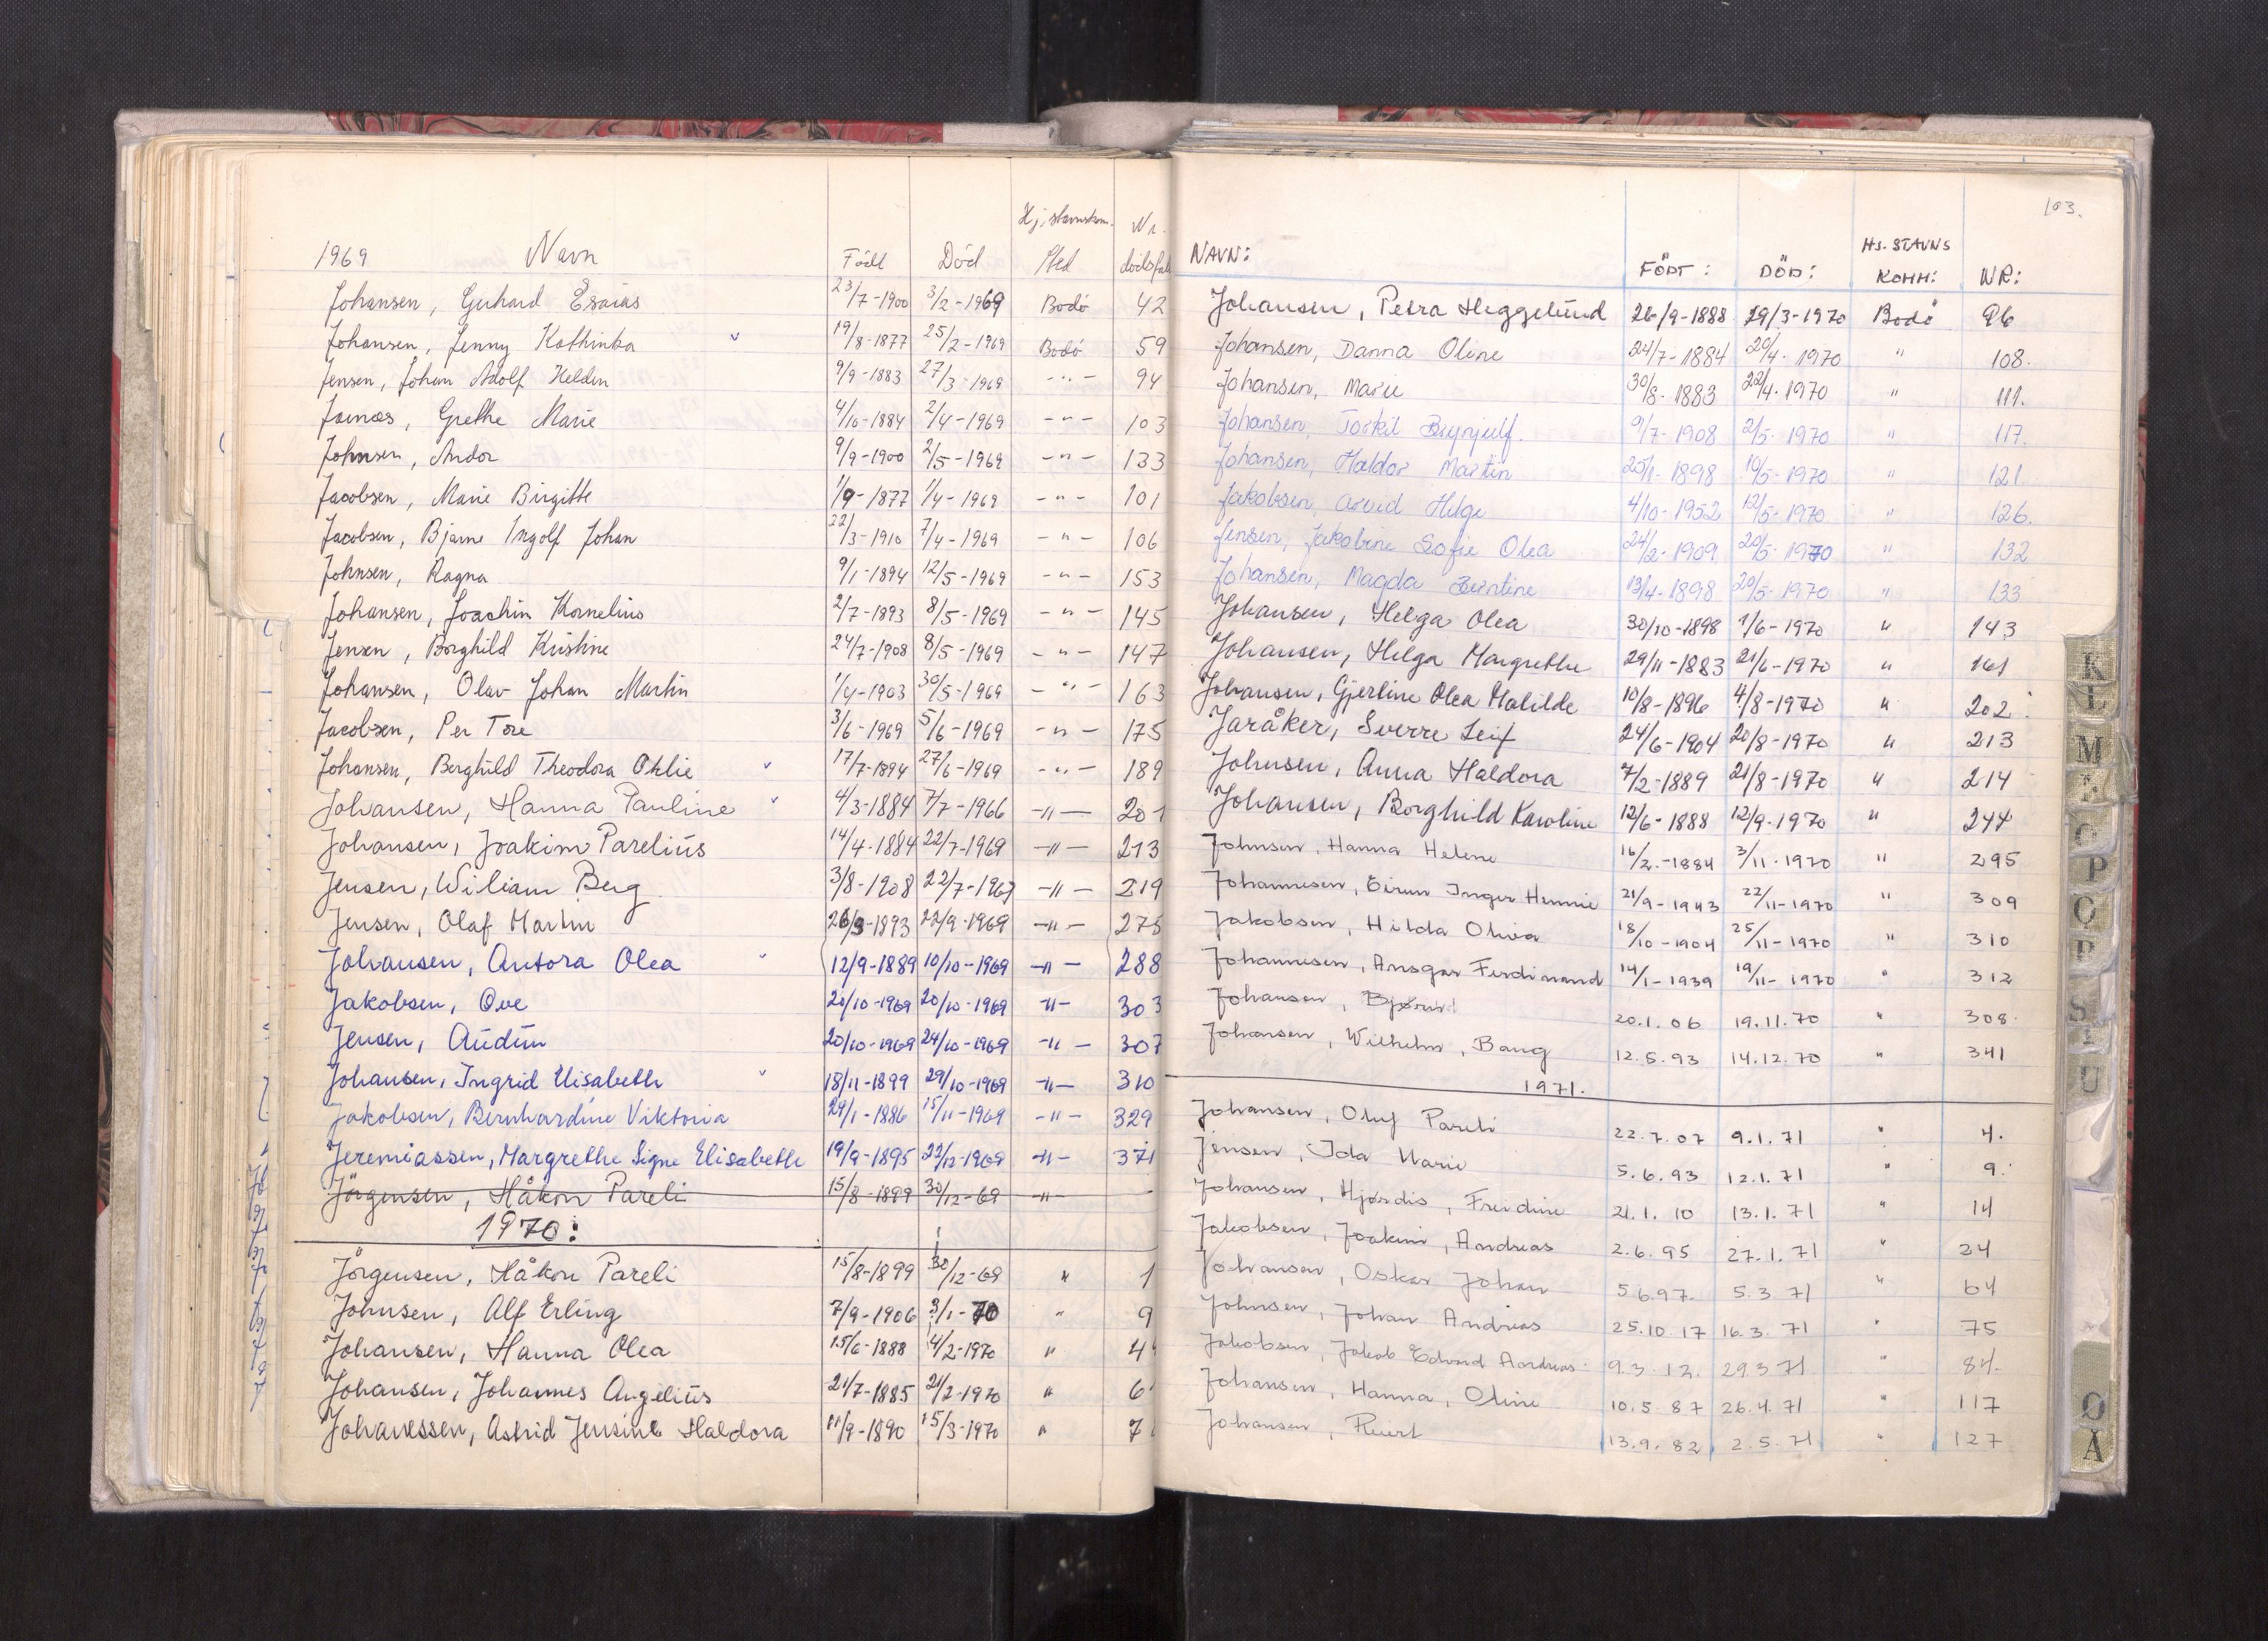 Hj. stavnskom. Nr.
1969 Navn Född Död Sted dødsfal
Johansen, Gerhard Esaias 23/7-1900 3/2-1969 Bodö 42
Johansen, Jenny Kathinka v 19/8-1877 25/2-1969 Bodö 59
Jensen, Johan Adolf Heldin 9/9-1883 27/3-1969 -"- 94
Grethe Marie 4/10-1884 2/4-1969 -"- 103
Johnsen, Andor 9/9-1900 2/5-1969 -"- 133
Jacobsen, Marie Birgitte 1/9-1877 1/4-1969 -"- 101
Jacobsen, Bjarne Ingolf Johan 22/3-1910 7/4-1969 -"- 106
Johnsen, Ragna 9/1-1894 12/5-1969 -"- 153
Johansen, Joachim Kornelius 2/7-1893 8/5-1969 -"- 145
Jensen, Borghild Kristine 24/7-1908 8/5-1969 -"- 147
Johansen, Olav Johan Martin 1/4-1903 30/5-1969 -"- 163
Jacobsen, Per Tore 3/6-1969 5/6-1969 -"- 175
Johansen, Berghild Theodora Othlie v 17/7-1894 27/6-1969 -"- 189
Johansen, Hanna Pauline v 4/3-1884 7/7-1966 -"- 201
Johansen, Joakim Parelius 14/4-1884 22/7-1969 -"- 213
Jensen, Wiliam Berg 3/8-1908 22/7-1969 -"- 219
Jensen, Olaf Martin 26/9-1893 22/9-1969 -"- 275
Johansen, Antora Olea v 12/9-1889 10/10-1969 -"- 288
Jakobsen, Ove 20/10-1969 20/10-1969 -"- 303
Jensen, Audun 20/10-1969 24/10-1969 -"- 307
Johansen, Ingrid Elisabeth v 18/11-1899 29/10-1969 -"- 310
Jakobsen, Bernhardine Viktoria 29/1-1886 15/11-1969 -"- 329
Jeremiassen, Margrethe Signe Elisabeth 19/9-1895 22/12-1969 -"- 371
Jörgensen, Håkon Pareli 15/8-1899 30/12-69 -"-
1970:
Jörgensen, Håkon Pareli 15/8-1899 30/12-69 " 1
Johnsen, Alf Erling 7/9-1906 3/1-70 " 9
Johansen, Hanna Olea 15/6-1888 4/2-1970 " 4
Johansen, Johannes Angelius 21/7-1885 21/2-1970 " 6
Johanessen, Astrid Jensine Haldora 11/9-1890 15/3-1970 " 7
103.
NAVN: FÖDT: DÖD: HJ. STAVNS KOMM: NR:
Johansen, Petra Heggelund 26/9-1888 29/3-1970 Bodö 96
Johansen, Danna Oline 24/7-1884 20/4-1970 " 108.
Johansen, Marie 30/8-1883 22/4-1970 " 111.
Johansen, Torkil Brynjulf. 9/7-1908 2/5-1970 " 117.
Johansen, Haldor Martin 25/1-1898 10/5-1970 " 121
Jakobsen, Arvid Helge 4/10-1952 12/5-1970 " 126.
Jensen, Jakobine Sofie Olea 24/2-1909 20/5-1970 " 132
Johansen, Magda Berntine 13/4-1898 20/5-1970 " 133
Johansen, Helga Olea 30/10-1898 1/6-1970 " 143
Johansen, Helga Margrethe 29/11-1883 21/6-1970 " 161
Johansen, Gjertine Olea Matilde 10/8-1896 4/8-1970 " 202
Jaråker, Sverre Leif 24/6-1904 20/8-1970 " 213
Johnsen, Anna Haldora 7/2-1889 21/8-1970 " 214
Johansen, Borghild Karoline 12/6-1888 12/9-1970 " 244
Johnsen, Hanna Helene 16/2-1884 3/11-1970 " 295
Johannesen, Eirun Inger Hennie 21/9-1943 22/11-1970 " 309
Jakobsen, Hilda Olivia 18/10-1904 25/11-1970 " 310
Johannesen, Ansgar Ferdinand 14/1-1939 19/11-1970 " 312
Johansen, Bjørnul 20.1.06 19.11.70 " 308.
Johansen, Wilhelm, Bang 12.5.93 14.12.70 " 341
1971.
Johansen, Oluf Pareli 22.7.07 9.1.71 " 4.
Jensen, Ida Marie 5.6.93 12.1.71 " 9.
Johansen, Hjørdis, Freidine 21.1.10 13.1.71 " 14
Jakobsen, Joakim, Andreas 2.6.95 27.1.71 " 24
Johansen, Oskar Johan 5.6.97. 5.3.71 " 64
Johnsen, Johan Andreas 25.10.17 16.3.71 " 75
Jakobsen, Jakob Edvard Andreas 9.3.12. 29.3.71 " 84.
Johansen, Hanna, Oline 10.5.87 26.4.71 " 117
Johansen, Reiert 13.9.82 2.5.71 " 127
K
L
M
N
O
P
Q
R
S
T
U
Ø
Å